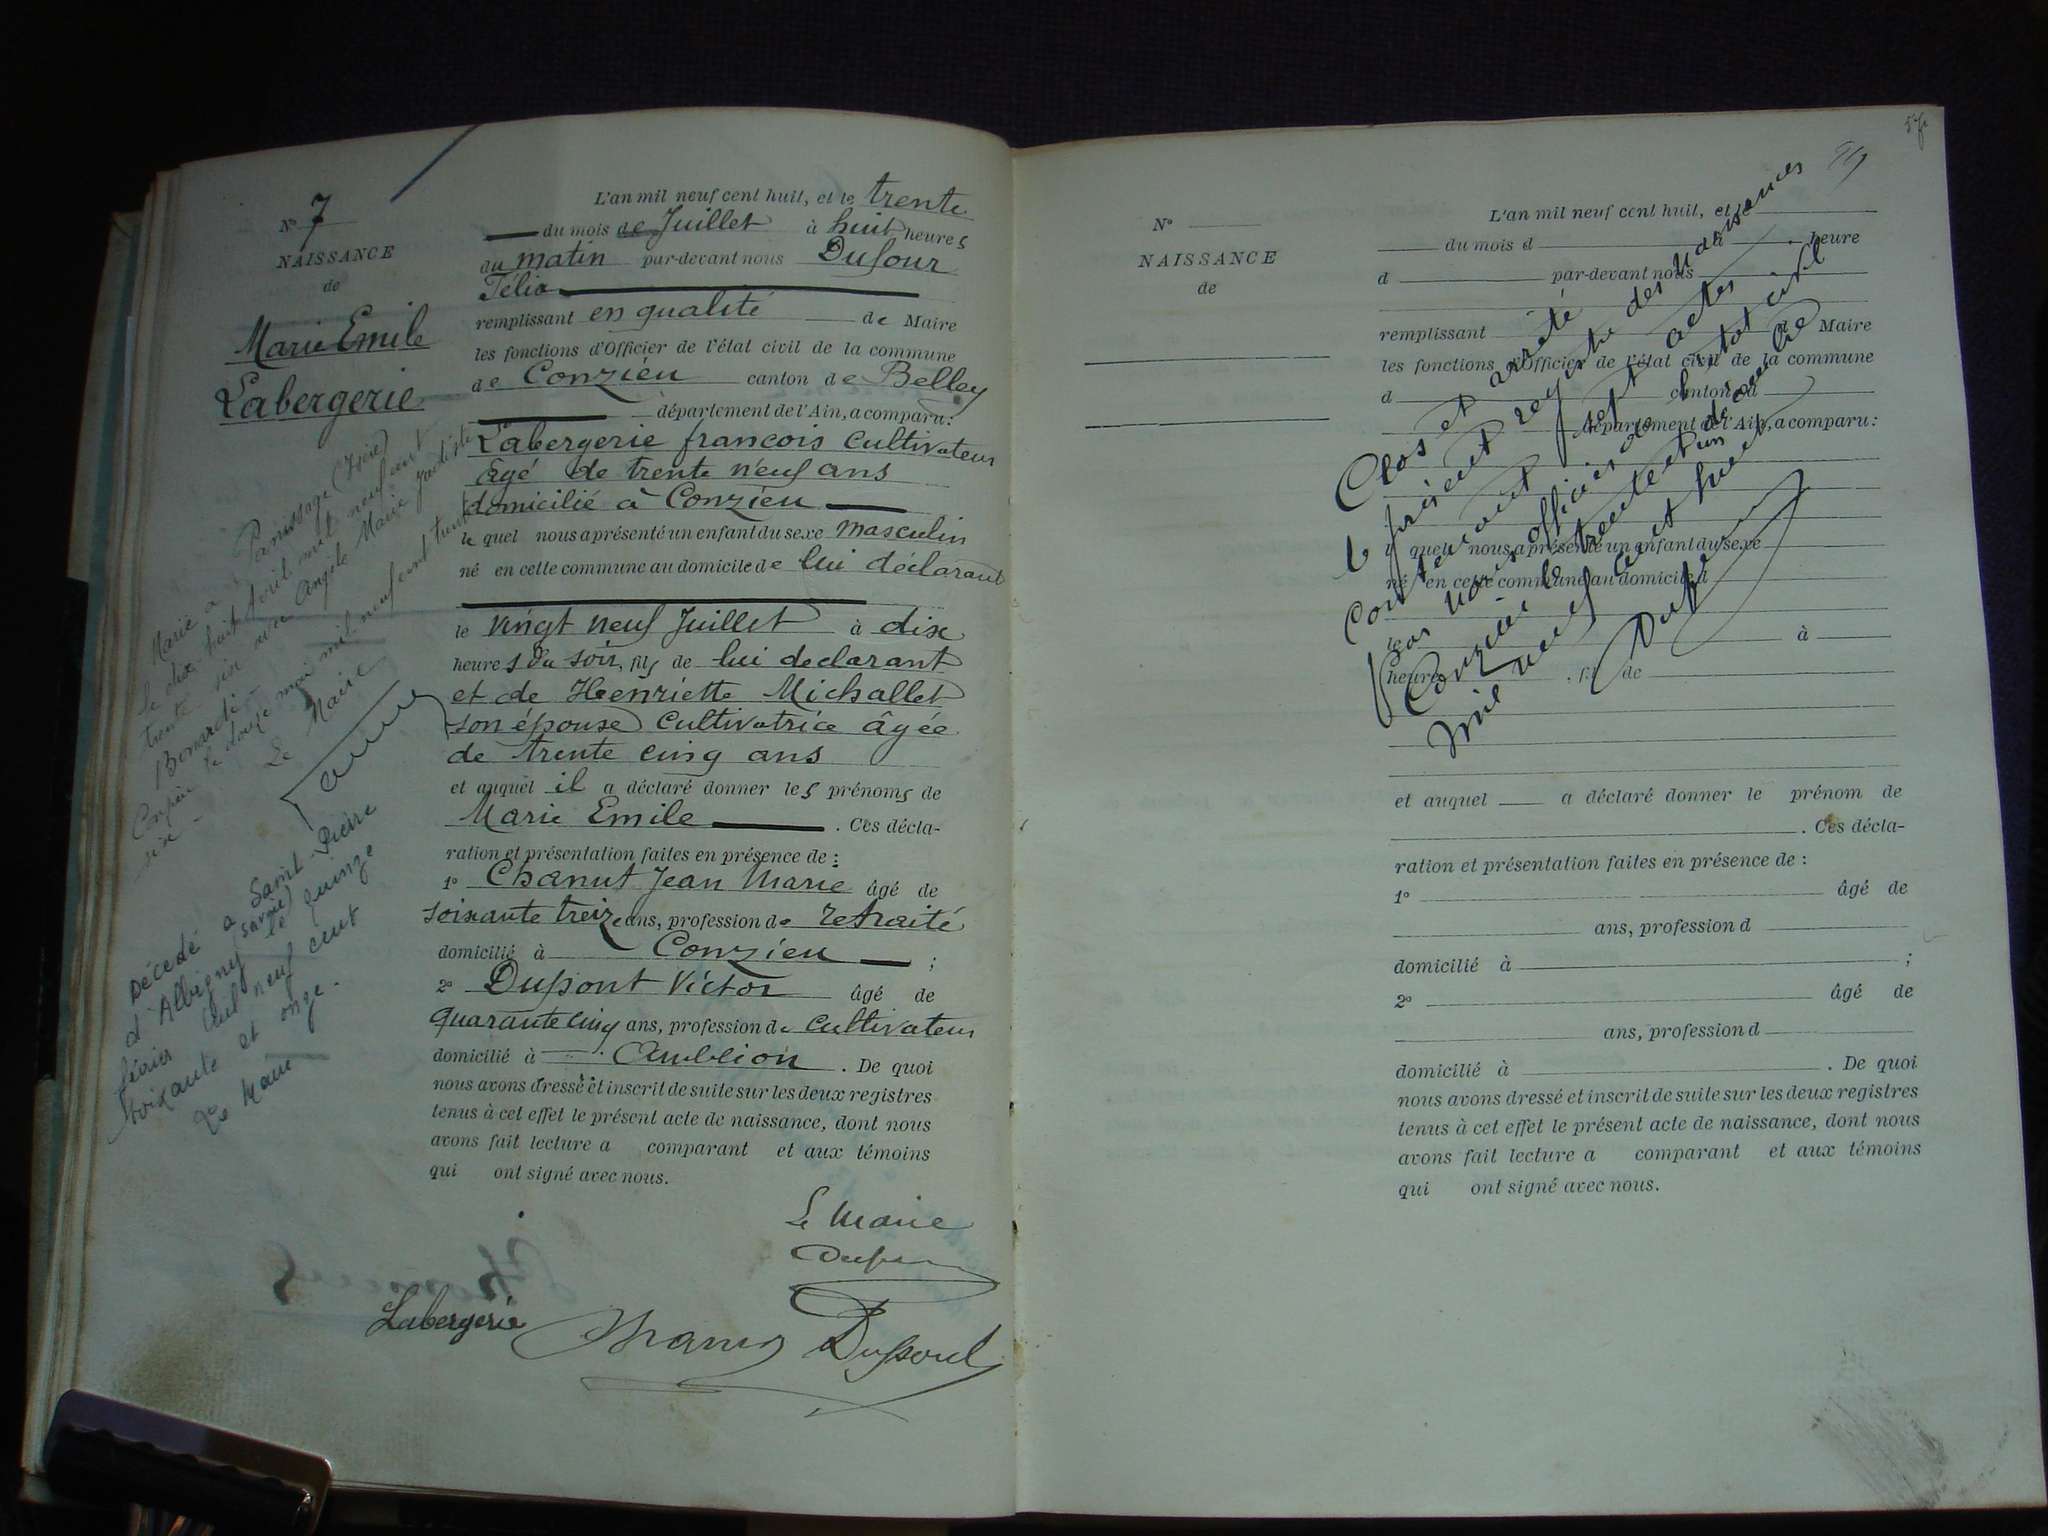 N° 7
NAISSANCE
de
Marie Emile
Labergerie
Marié à Panissage (Isère)
le dix huit avril mil neuf cent
trente six avec Angèle Marie
le douze mai mil neuf cent trente
six
Le Maire
Décédé à Saint-Pierre
d'Albigny (Savoie) le quinze
février mil neuf cent
soixante et onze.
Le Maire
L'an mil neuf cent huit, et le trente
du mois de Juillet à huit heures
du matin par-devant nous Dufour
Félix
remplissant en qualité de Maire
les fonctions d'Officier de l'état civil de la commune
de Conzieu canton de Belley
département de l'Ain, a comparu:
Labergerie francois cultivateur
âgé de trente neuf ans
domicilié à Conzieu
le quel nous a présenté un enfant du sexe masculin
né en cette commune au domicile de lui déclarant
le vingt neuf Juillet à dix
heures du soir, fils de lui declarant
et de Henriette Michallet
son épouse cultivatrice âgée
de trente cinq ans
et auquel il a déclaré donner les prénoms de
Marie Emile . Ces décla-
ration et présentation faites en présence de :
1° Chanut Jean Marie âgé de
soixante treize ans, profession de retraité
domicilié à Conzieu ;
2° Dupont Victor âgé de
quarante cinq ans, profession de cultivateur
domicilié à Ambléon . De quoi
nous avons dressé et inscrit de suite sur les deux registres
tenus à cet effet le présent acte de naissance, dont nous
avons fait lecture a comparant et aux témoins
qui ont signé avec nous.
Le Maire
Labergerie
Dupont
N°
NAISSANCE
de
L'an mil neuf cent huit, et le
du mois d à heure
d par-devant nous
remplissant d Maire
les fonctions d'Officier de l'état civil de la commune
d canton d
département de l'Ain, a comparu:
quel nous a présenté un enfant du sexe
né en cette commune au domicile d
le à
heure , fil de
et auquel a déclaré donner le prénom de
. Ces décla-
ration et présentation faites en présence de :
1° âgé de
ans, profession d
domicilié à ;
2° âgé de
ans, profession d
domicilié à . De quoi
nous avons dressé et inscrit de suite sur les deux registres
tenus à cet effet le présent acte de naissance, dont nous
avons fait lecture a comparant et aux témoins
qui ont signé avec nous.
Clos et arrêté
le présent registre des naissances
contenant sept actes
par nous officier de l'état civil
Conzieu le trente et un décembre
mil neuf cent huit